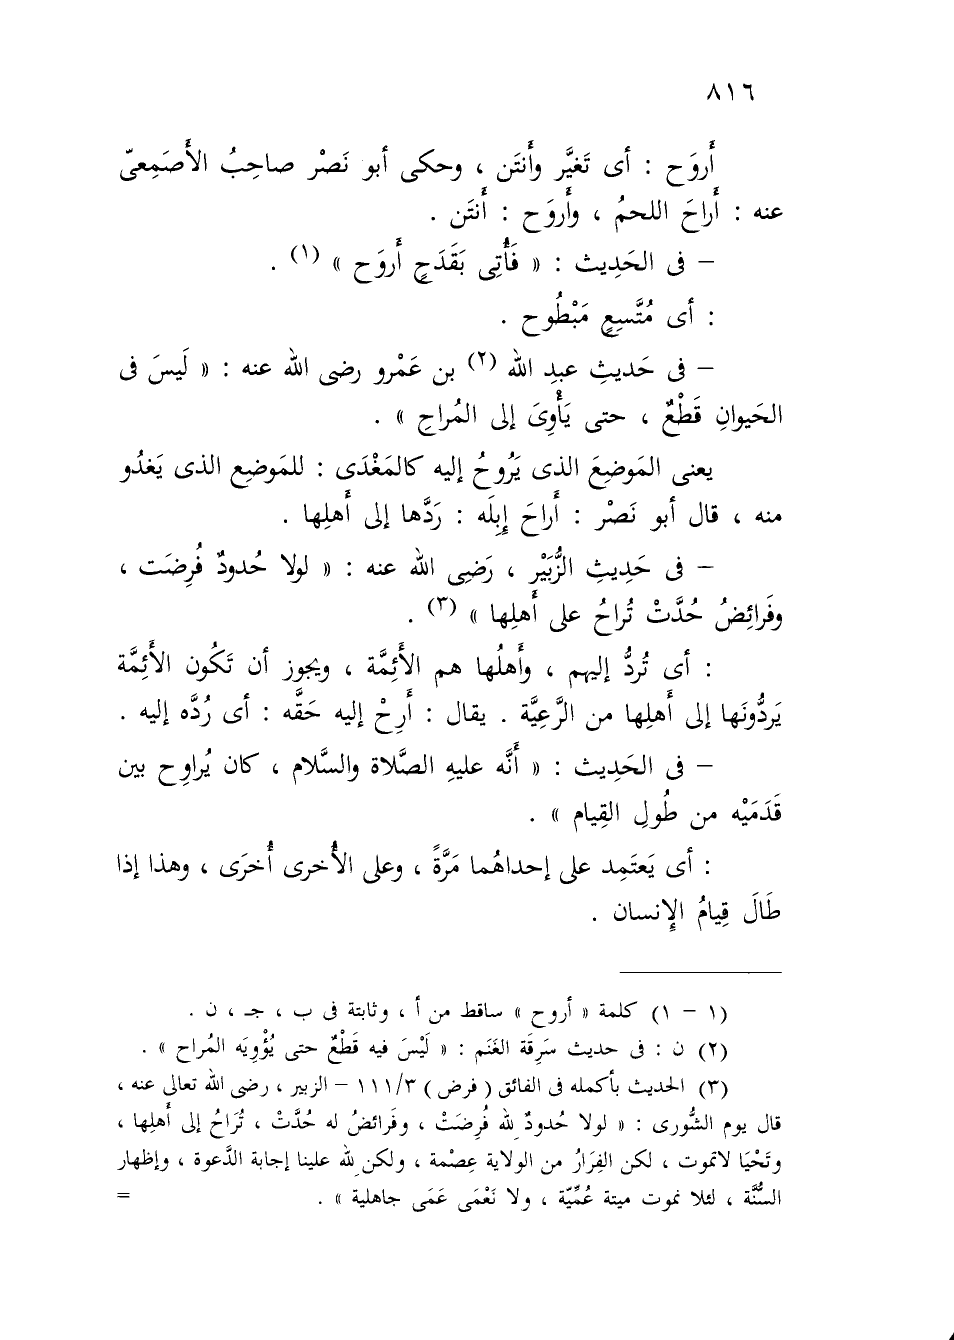 ٨١٦
أَروَح : أى تَغيَّر وأَنتَن ، وحكى أبو نَصْر صاحِبُ الأَصَمِعىّ
عنه : أَراحَ اللحمُ ، وأَروَح : أَنتَن .
– فى الحَدِيث : « فَأُتِى بَقَدَحٍ أَروَح » (١) .
: أى مُتَّسِعٍ مَبْطُوح .
– فى حَديثِ عبدِ الله (٢) بن عَمْرو رضى الله عنه : « لَيسَ فى
الحَيوانِ قَطْعٌ ، حتى يَأْوِىَ إلى المُراحِ » .
يعنى المَوضِعَ الذى يَرُوحُ إليه كالمَغْدَى : للمَوضِع الذى يَغدُو
منه ، قال أبو نَصْر : أَراحَ إِبِلَه : رَدَّها إلى أَهلِها .
– فى حَدِيثِ الزُّبَيْر ، رَضِى الله عنه : « لولا حُدودٌ فُرِضَت ،
وفَرائِضُ حُدَّتْ تُراحُ على أَهلِها » (٣) .
: أى تُردُّ إليهم ، وأَهلُها هم الأَئِمَّة ، ويجوز أن تَكُون الأَئِمَّة
يَردُّونَها إلى أَهلِها من الرَّعِيَّة . يقال : أَرِحْ إليه حَقَّه : أى رُدَّه إليه .
– فى الحَدِيث : « أَنَّه عليهِ الصَّلاة والسَّلام ، كان يُراوِح بين
قَدَمَيْه من طُولِ القِيام » .
: أى يَعتَمِد على إحداهُما مَرَّةً ، وعلى الأُخرى أُخرَى ، وهذا إذا
طَالَ قِيامُ الإنسان .
(١ – ١) كلمة « أروح » ساقط من أ ، وثابتة فى ب ، جـ ، ن .
(٢) ن : فى حديث سَرِقَة الغَنَم : « لَيْسَ فيه قَطْعٌ حتى يُؤْوِيَه المُراح » .
(٣) الحديث بأكمله فى الفائق ( فرض ) ١١١/٣ – الزبير ، رضى الله تعالى عنه ،
قال يوم الشُّورى : « لولا حُدودٌ لله فُرِضَتْ ، وفَرائضُ له حُدَّتْ ، تُرَاحُ إلى أَهلِها ،
وتَحْيَا لاتموت ، لكن الفِرَارُ من الولاية عِصْمة ، ولكن لله علينا إجابة الدَّعوة ، وإظهار
السُّنَّة ، لئلا نموت ميتة عُمِّيّة ، ولا نَعْمَى عَمَى جاهلية » . =